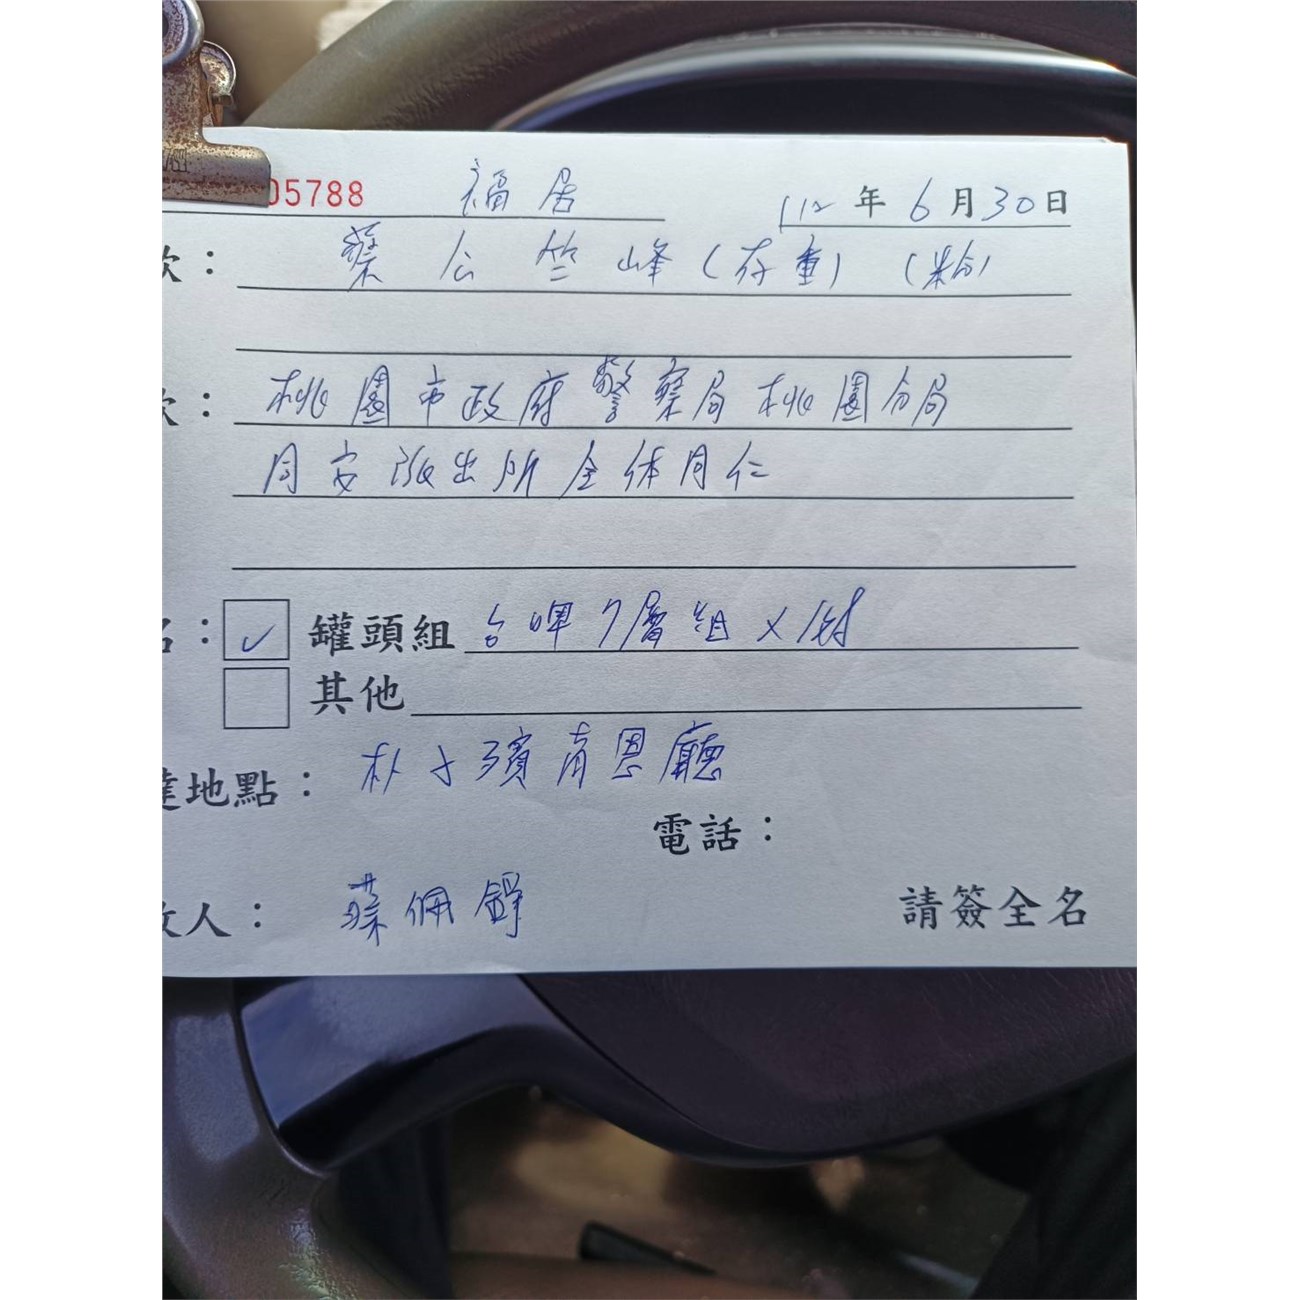 05788 福居 112年6月30日
款：蔡公竺峰（存重）（粉）
款：桃園市政府警察局桃園分局
同安派出所全体同仁
名：✓ 罐頭組 台啤7層組×1対
其他
達地點：朴子殯 思廳
電話：
收人：蔡佩錚 請簽全名